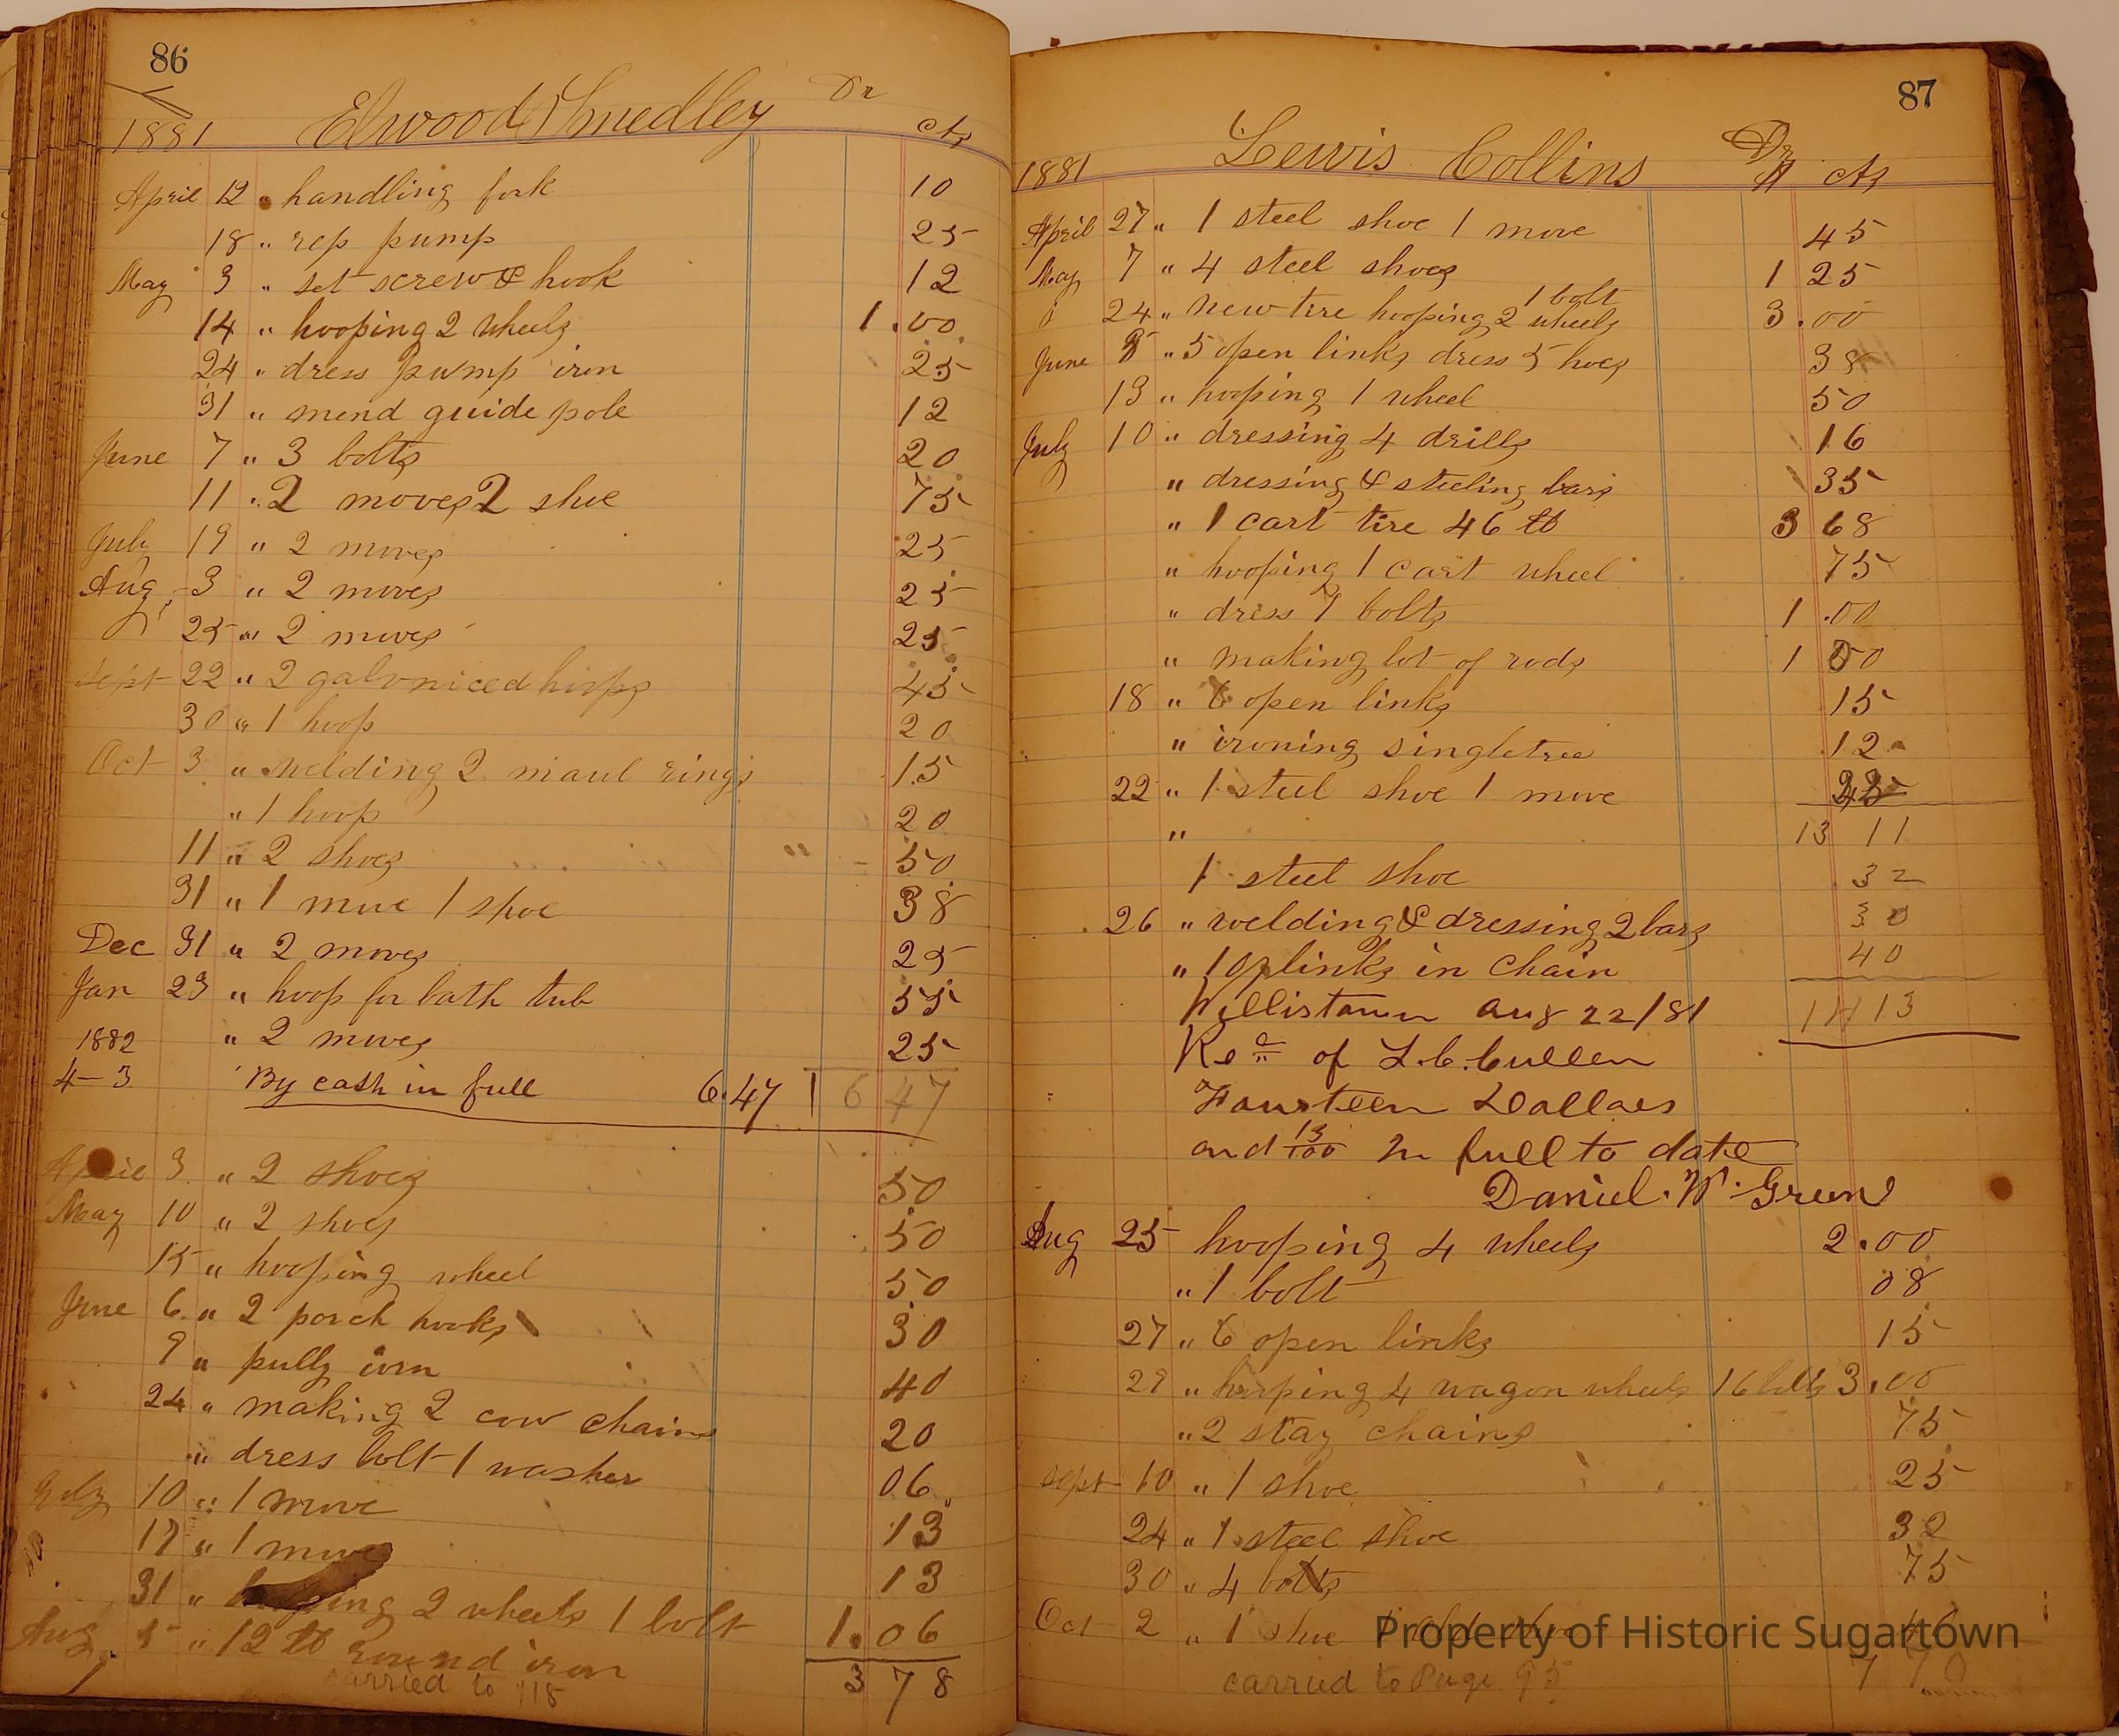 86
Elwood Smedley Dr
1881 cts
April 12 " handling fork 10
18 " rep pump 25
May 3 " set screw & hook 12
14 " hooping 2 wheels 1.00
24 " dress pump iron 25
31 " mend guide pole 12
June 7 " 3 bolts 20
11 " 2 moves 2 shoe 75
July 19 " 2 moves 25
Aug 3 " 2 moves 25
25 " 2 moves 25
Sept 22 " 2 galvniced hoops 45
30 " 1 hoop 20
Oct 3 " welding 2 maul rings 15
" 1 hoop 20
11 " 2 shoes 50
31 " 1 move 1 shoe 38
Dec 31 " 2 moves 25
Jan 23 " hoop for bath tub 55
1882 " 2 moves 25
4-3 By cash in full 6.47 6 47
April 3 " 2 shoes 50
May 10 " 2 shoes 50
15 " hooping wheel 50
June 6 " 2 porch hooks 30
9 " pully iorn 40
24 " making 2 cow chains 20
" dress bolt 1 washer 06
July 10 " 1 move 13
17 " 1 move 13
31 " hooping 2 wheels 1 bolt 1.06
Aug 5 " 12 lb round iron
carried to 118 3 78
87
Lewis Collins Dr
1881 $ cts
April 27 " 1 steel shoe 1 move 45
May 7 " 4 steel shoes 1 25
1 bolt
24 " new tire hooping 2 wheels 3.00
June 8 " 5 open links dress 5 hoes 38
13 " hooping 1 wheel 50
July 10 " dressing 4 drills 16
" dressing & steeling bars 35
" 1 cart tire 46 lb 3 68
" hooping 1 cart wheel 75
" dress 9 bolts 1.00
" making lot of rods 1 50
18 " 6 open links 15
" ironing singletree 12
22 " 1 steel shoe 1 move
" 13 11
1 steel shoe 32
26 " welding & dressing 2 bars 30
" 10 oplinks in chain 40
Willistown Aug 22/81 14 13
Rec of L.C. Cullen
Fourteen Dollars
and 13/100 In full to date
Daniel W. Green
Aug 25 hooping 4 wheels 2.00
" 1 bolt 08
27 " 6 open links 15
29 " hooping 4 wagon wheels 16 bolts 3.00
" 2 stay chains 75
Sept 10 " 1 shoe 25
24 " 1 steel shoe 32
30 " 4 bolts 75
Oct 2 " 1 shoe
carried to Page 95 7 70
Property of Historic Sugartown